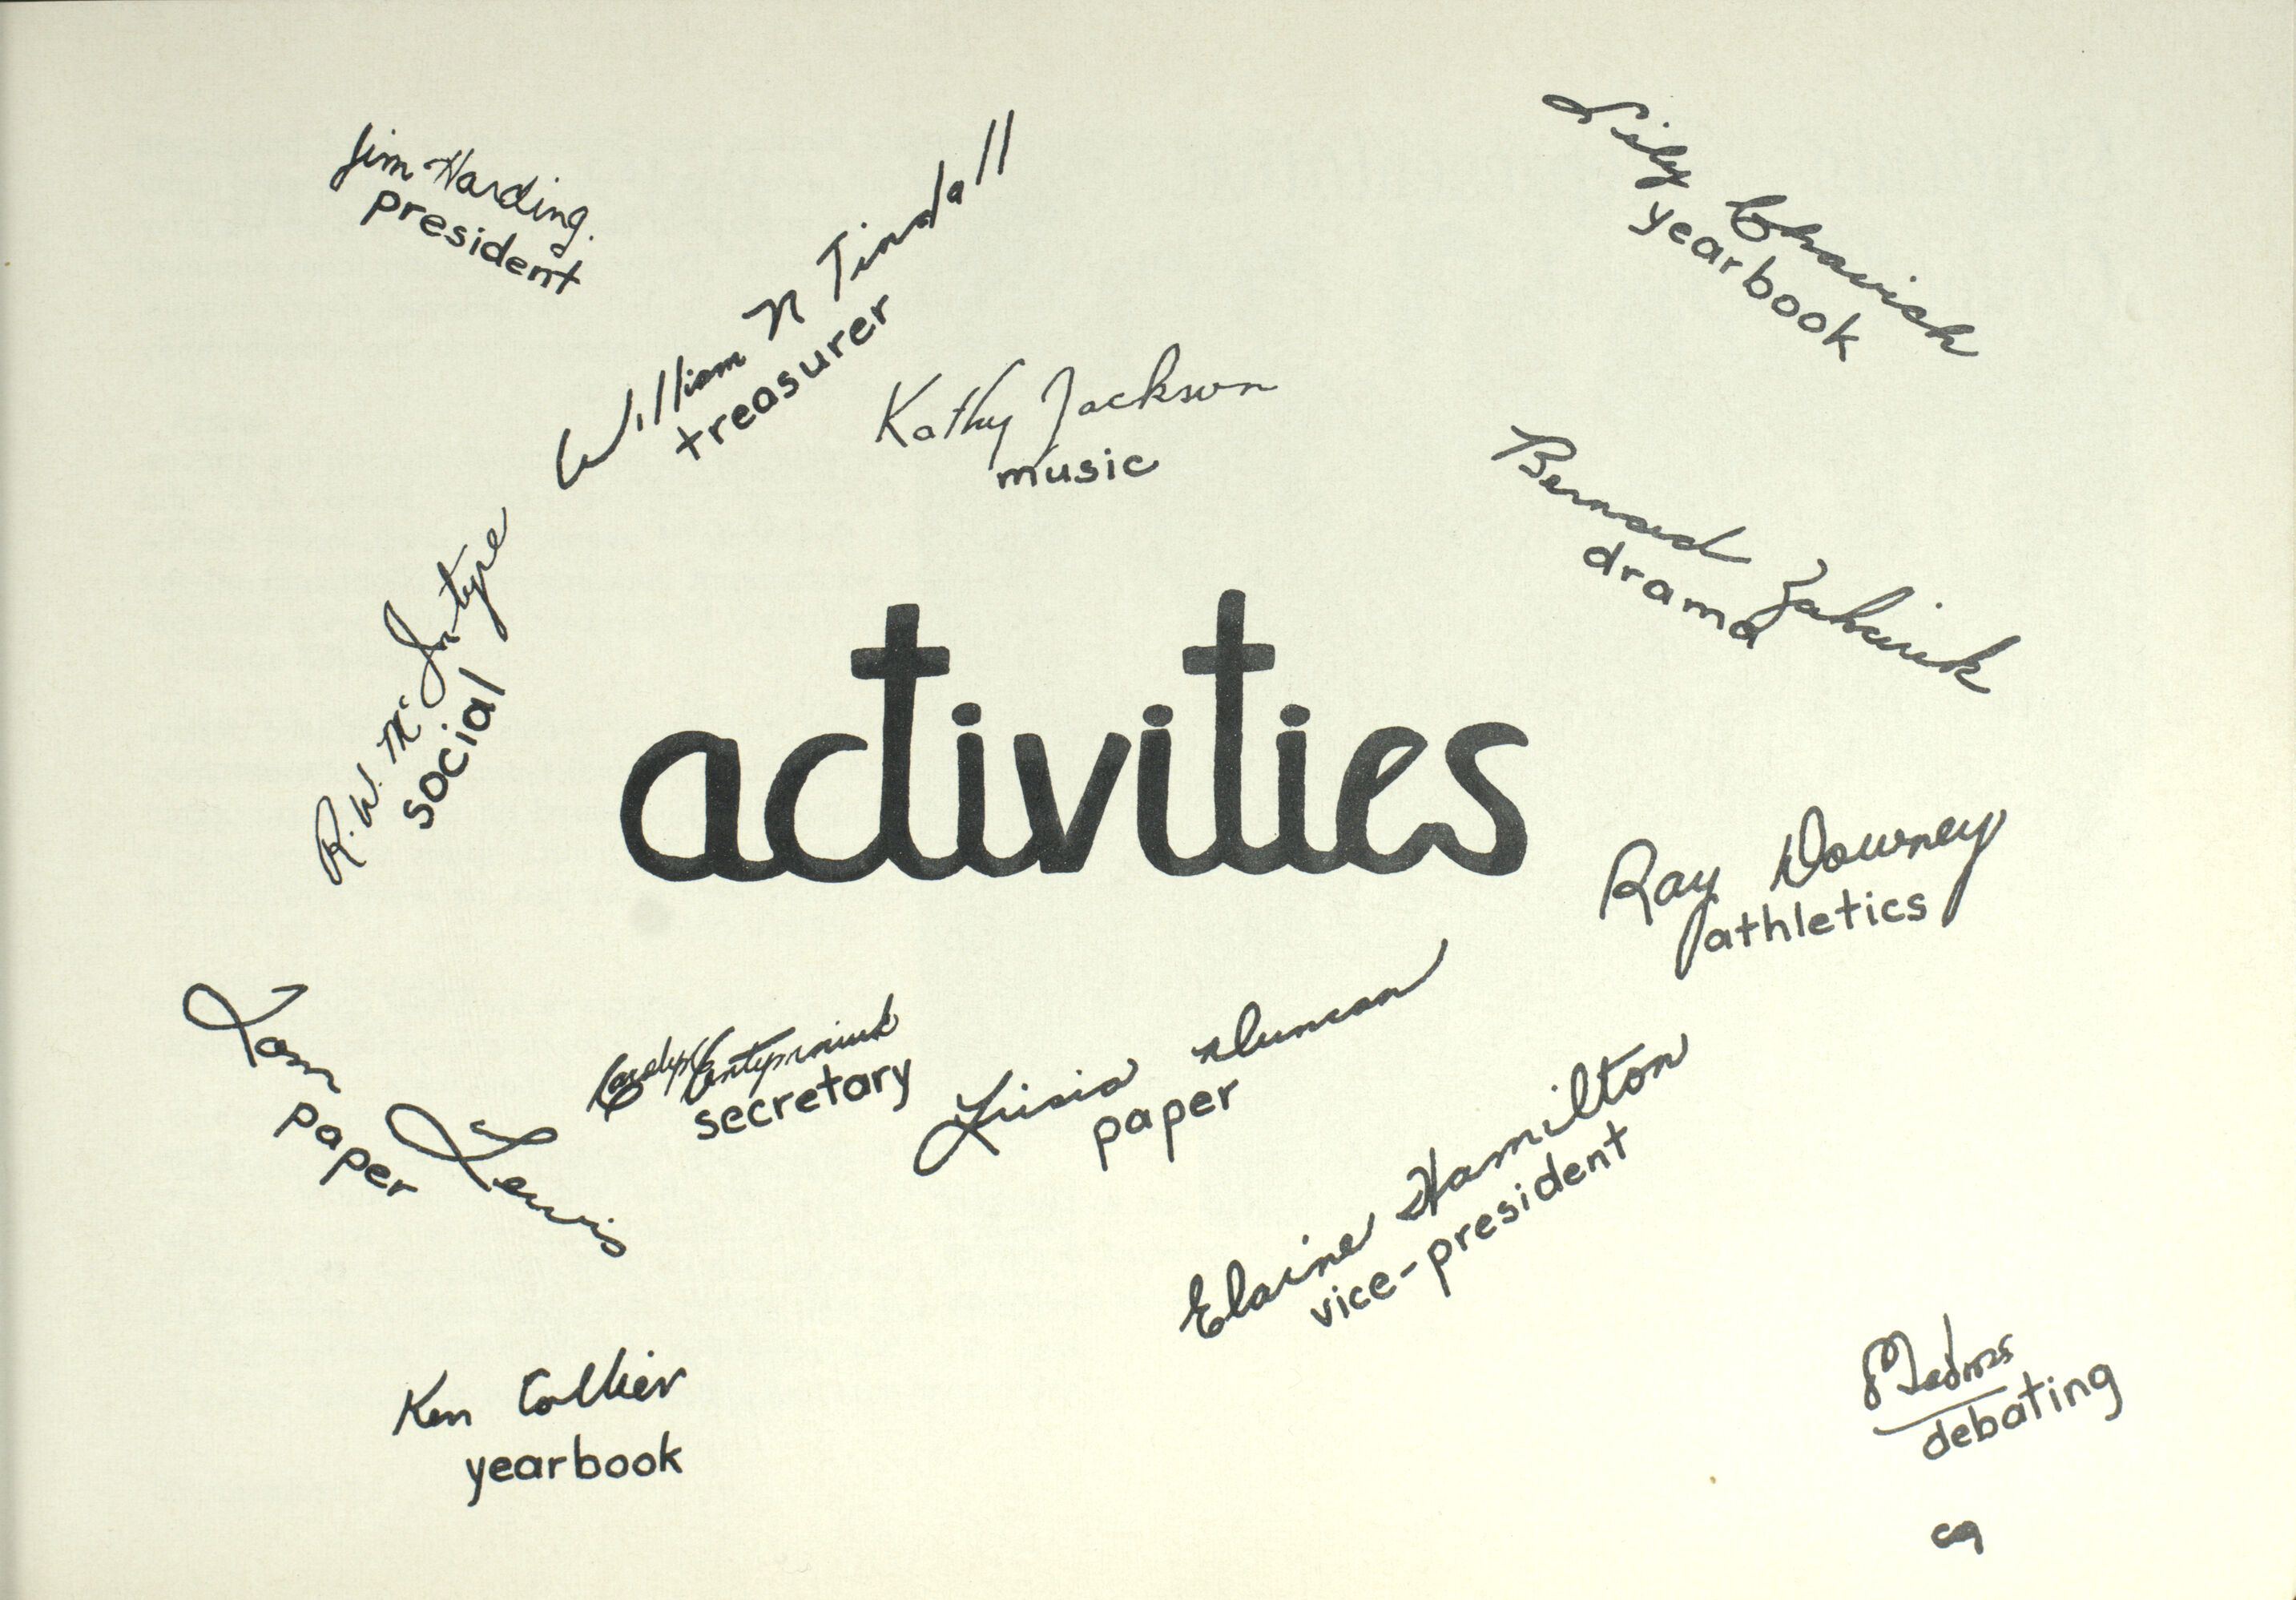 Jim Harding.
president
William N Tindall
treasurer
Lily Chavish
yearbook
Kathy Jackson
music
Bernard
drama
R. W. McIntyre
social
activities
Ray Downey
athletics
Tom Lewis
paper
Carolyn
secretary
Duncan
paper
Elaine Hamilton
vice-president
Ken Collier
yearbook
debating